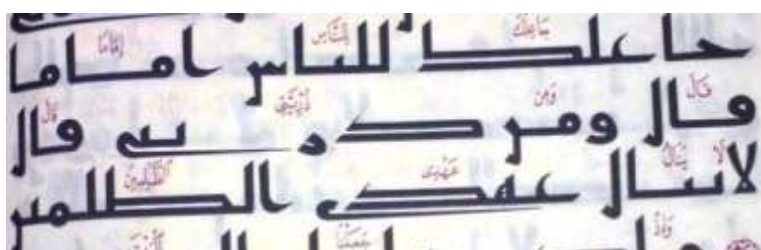 جاعلك للناس اماما
قال ومن ذريتى قال
لا ينال عهدى الظلمين